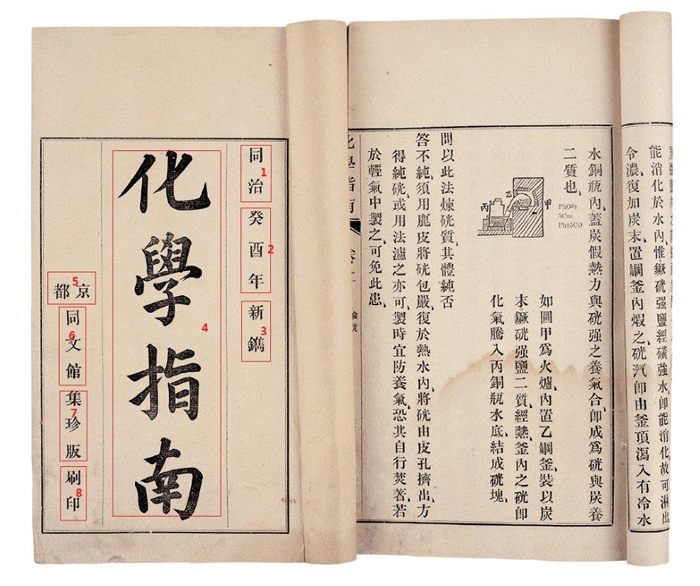 同治癸酉年新鐫
化學指南
京都
同文館集珍版刷印
1
2
3
4
5
6
7
8
能消化於水內、惟硄强鹽、經磺强水卽能消化、故可淋出
令濃、復加炭末、置鋼釜內煆之、硄汽卽由釜頂瀉入有冷水
水銅瓶內、蓋炭假熱力與硄强之養氣合、卽成爲硄與炭養
二質也、
甲
乙
丙
5Cm
如圖甲爲火爐、內置乙鋼釜、裝以炭
末硄强鹽二質、經熱釜內之硄卽
化氣騰入丙銅瓶水底、結成硄塊、
問以此法煉硄質、其體純否
答不純、須用鹿皮將硄包嚴、復於熱水內、將硄由皮孔擠出、方
得純硄、或用法濾之亦可、製時宜防養氣、恐其自行著、若
於輕氣中製之、可免此患、
化學指南